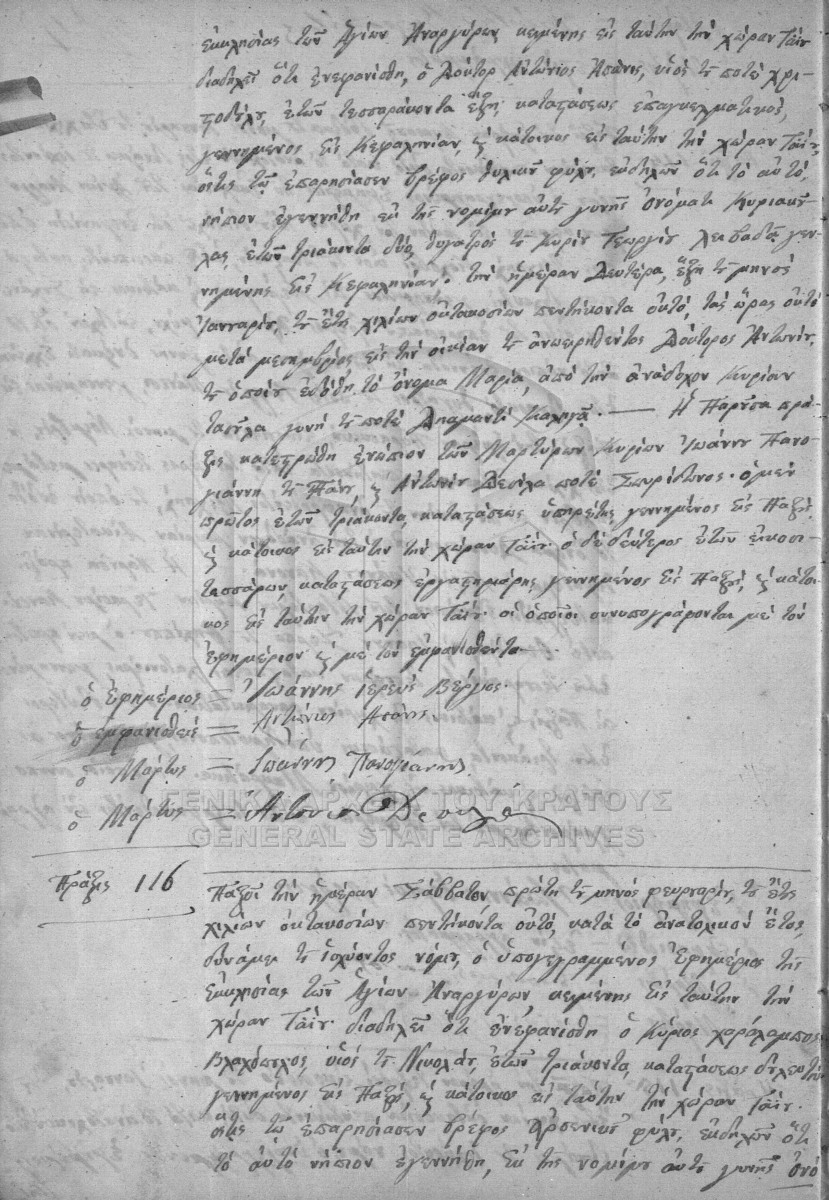 ἐκκλησίας τῶν Ἁγίων Ἀναργύρων κειμένης εἰς ταύτην τὴν χώραν Γάϊ
διαδηλεῖ ὅτι ἐνεφανίσθη, ὁ Δόυτορ Ἀντώνιος, υἱὸς τοῦ ποτὲ Χρι-
στοδούλου, ἐτῶν τεσσαράκοντα ἕξη, καταστάσεως ἐπαγγελματικός,
γεννημένος εἰς Κεφαληνίαν, καὶ κάτοικος εἰς ταύτην τὴν χώραν Γάϊ,
ὅστις τῷ ἐπαρησίασεν βρέφος θυλικοῦ φύλου, ἐκδηλῶν ὅτι τὸ αὐτό,
νήπιον ἐγεννήθη ἐκ τῆς νομίμου αὐτοῦ γυνῆς ὀνόματι Κυριακού-
λας, ἐτῶν τριάκοντα δύο, θυγατρὸς τοῦ Κυρίου Γεωργίου γεν-
νημένης εἰς Κεφαληνίαν. τὴν ἡμέραν Δευτέρα, ἕξη τοῦ μηνὸς
Ἰανναρίου, τοῦ ἔτους χιλίων ὀκτακοσίων πεντήκοντα ὀκτό, τὰς ὥρας ὀκτό
μετὰ μεσημβρίας εἰς τὴν οἰκίαν τοῦ ἀνωειρηθέντος Δόυτορος Ἀντωνίου,
τοῦ ὁποίου ἐδόθη τὸ ὄνομα Μαρία, ἀπὸ τὴν ἀνάδοχον Κυρίαν
γυνή τοῦ ποτὲ Διαμαντῆ. — Ἡ Παροῦσα πρᾶ-
ξις κατεστρώθη ἐνώπιον τῶν Μαρτύρων Κυρίων Ἰωάννου Πανο-
γιάννη τοῦ, καὶ Ἀντωνίου ποτὲ Σπυρίδωνος. ὁ μὲν
πρῶτος ἐτῶν τριάκοντα, καταστάσεως ὑπηρέτης γεννημένος εἰς Παξούς,
καὶ κάτοικος εἰς ταύτην τὴν χώραν Γάϊ. ὁ δὲ δεύτερος ἐτῶν εἰκοσι-
τεσσάρων, καταστάσεως ἐργαστηριάρης γεννημένος εἰς Παξούς, καὶ κάτοι-
κος εἰς ταύτην τὴν χώραν Γάϊ. οἱ ὁποῖοι συνυπογράφονται μὲ τὸν
Ἐφημέριον καὶ μὲ τὸν ἐμφανισθέντα.
ὁ Ἐφημέριος = Ἰωάννης Ἱερεὺς Βέργος.
ὁ ἐμφανισθεὶς = Ἀντώνιος
ὁ Μάρτυς = Ἰωάννης Πανογιάννης
ὁ Μάρτυς = Ἀντώνιος
ΓΕΝΙΚΑ ΑΡΧΕΙΑ ΤΟΥ ΚΡΑΤΟΥΣ
GENERAL STATE ARCHIVES
Πρᾶξις 116
Παξοὶ τὴν ἡμέραν Σάββατον πρώτη τοῦ μηνὸς φευρναρίου, τοῦ ἔτους
χιλίων ὀκτακοσίων πεντήκοντα ὀκτό, κατὰ τὸ ἀνατολικὸν ἔτος,
δυνάμει τοῦ ἰσχύοντος νόμου, ὁ ὑπογεγραμμένος Ἐφημέριος τῆς
ἐκκλησίας τῶν Ἁγίων Ἀναργύρων, κειμένης εἰς ταύτην τὴν
χώραν Γάϊ. διαδηλεῖ ὅτι ἐνεφανίσθη ὁ Κύριος χαράλαμπος
Βλαχόπουλος, υἱὸς τοῦ Νικολάου, ἐτῶν τριάκοντα, καταστάσεως δουλευτής
γεννημένος εἰς Παξούς, καὶ κάτοικος εἰς ταύτην τὴν χώραν Γάϊ.
ὅστις τῷ ἐπαρησίασεν βρέφος ἀρσενικοῦ φύλου, ἐκδηλῶν ὅτι
τὸ αὐτὸ νήπιον ἐγεννήθη, ἐκ τῆς νομίμου αὐτοῦ γυνῆς ὀνό